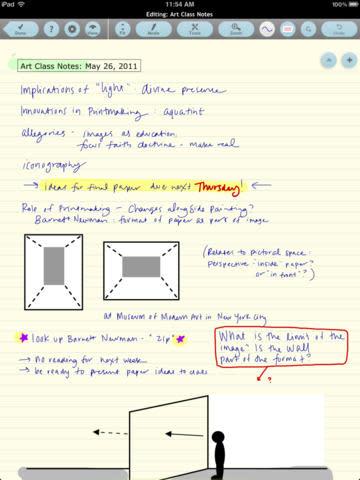 iPad
11:54 AM
100%
Editing: Art Class Notes
Done
Settings
View
Fit
Audio
Tools
Zoom
Undo
Art Class Notes: May 26, 2011
Implications of "light": divine presence
Innovations in Printmaking: aquatint
allegories - images as education,
focus faith doctrine - make real
iconography
→ ideas for final paper due next Thursday! ←
Role of Printmaking - Changes alongside Painting?
Barnett Newman: format of paper as part of image
(Relates to pictorial space:
perspective "inside" paper?
or "in front"?)
at Museum of Modern Art in New York City
look up Barnett Newman - "Zip"
→ no reading for next week
→ be ready to present paper ideas to class
What is the limit of the
image? Is the wall
part of the format?
?